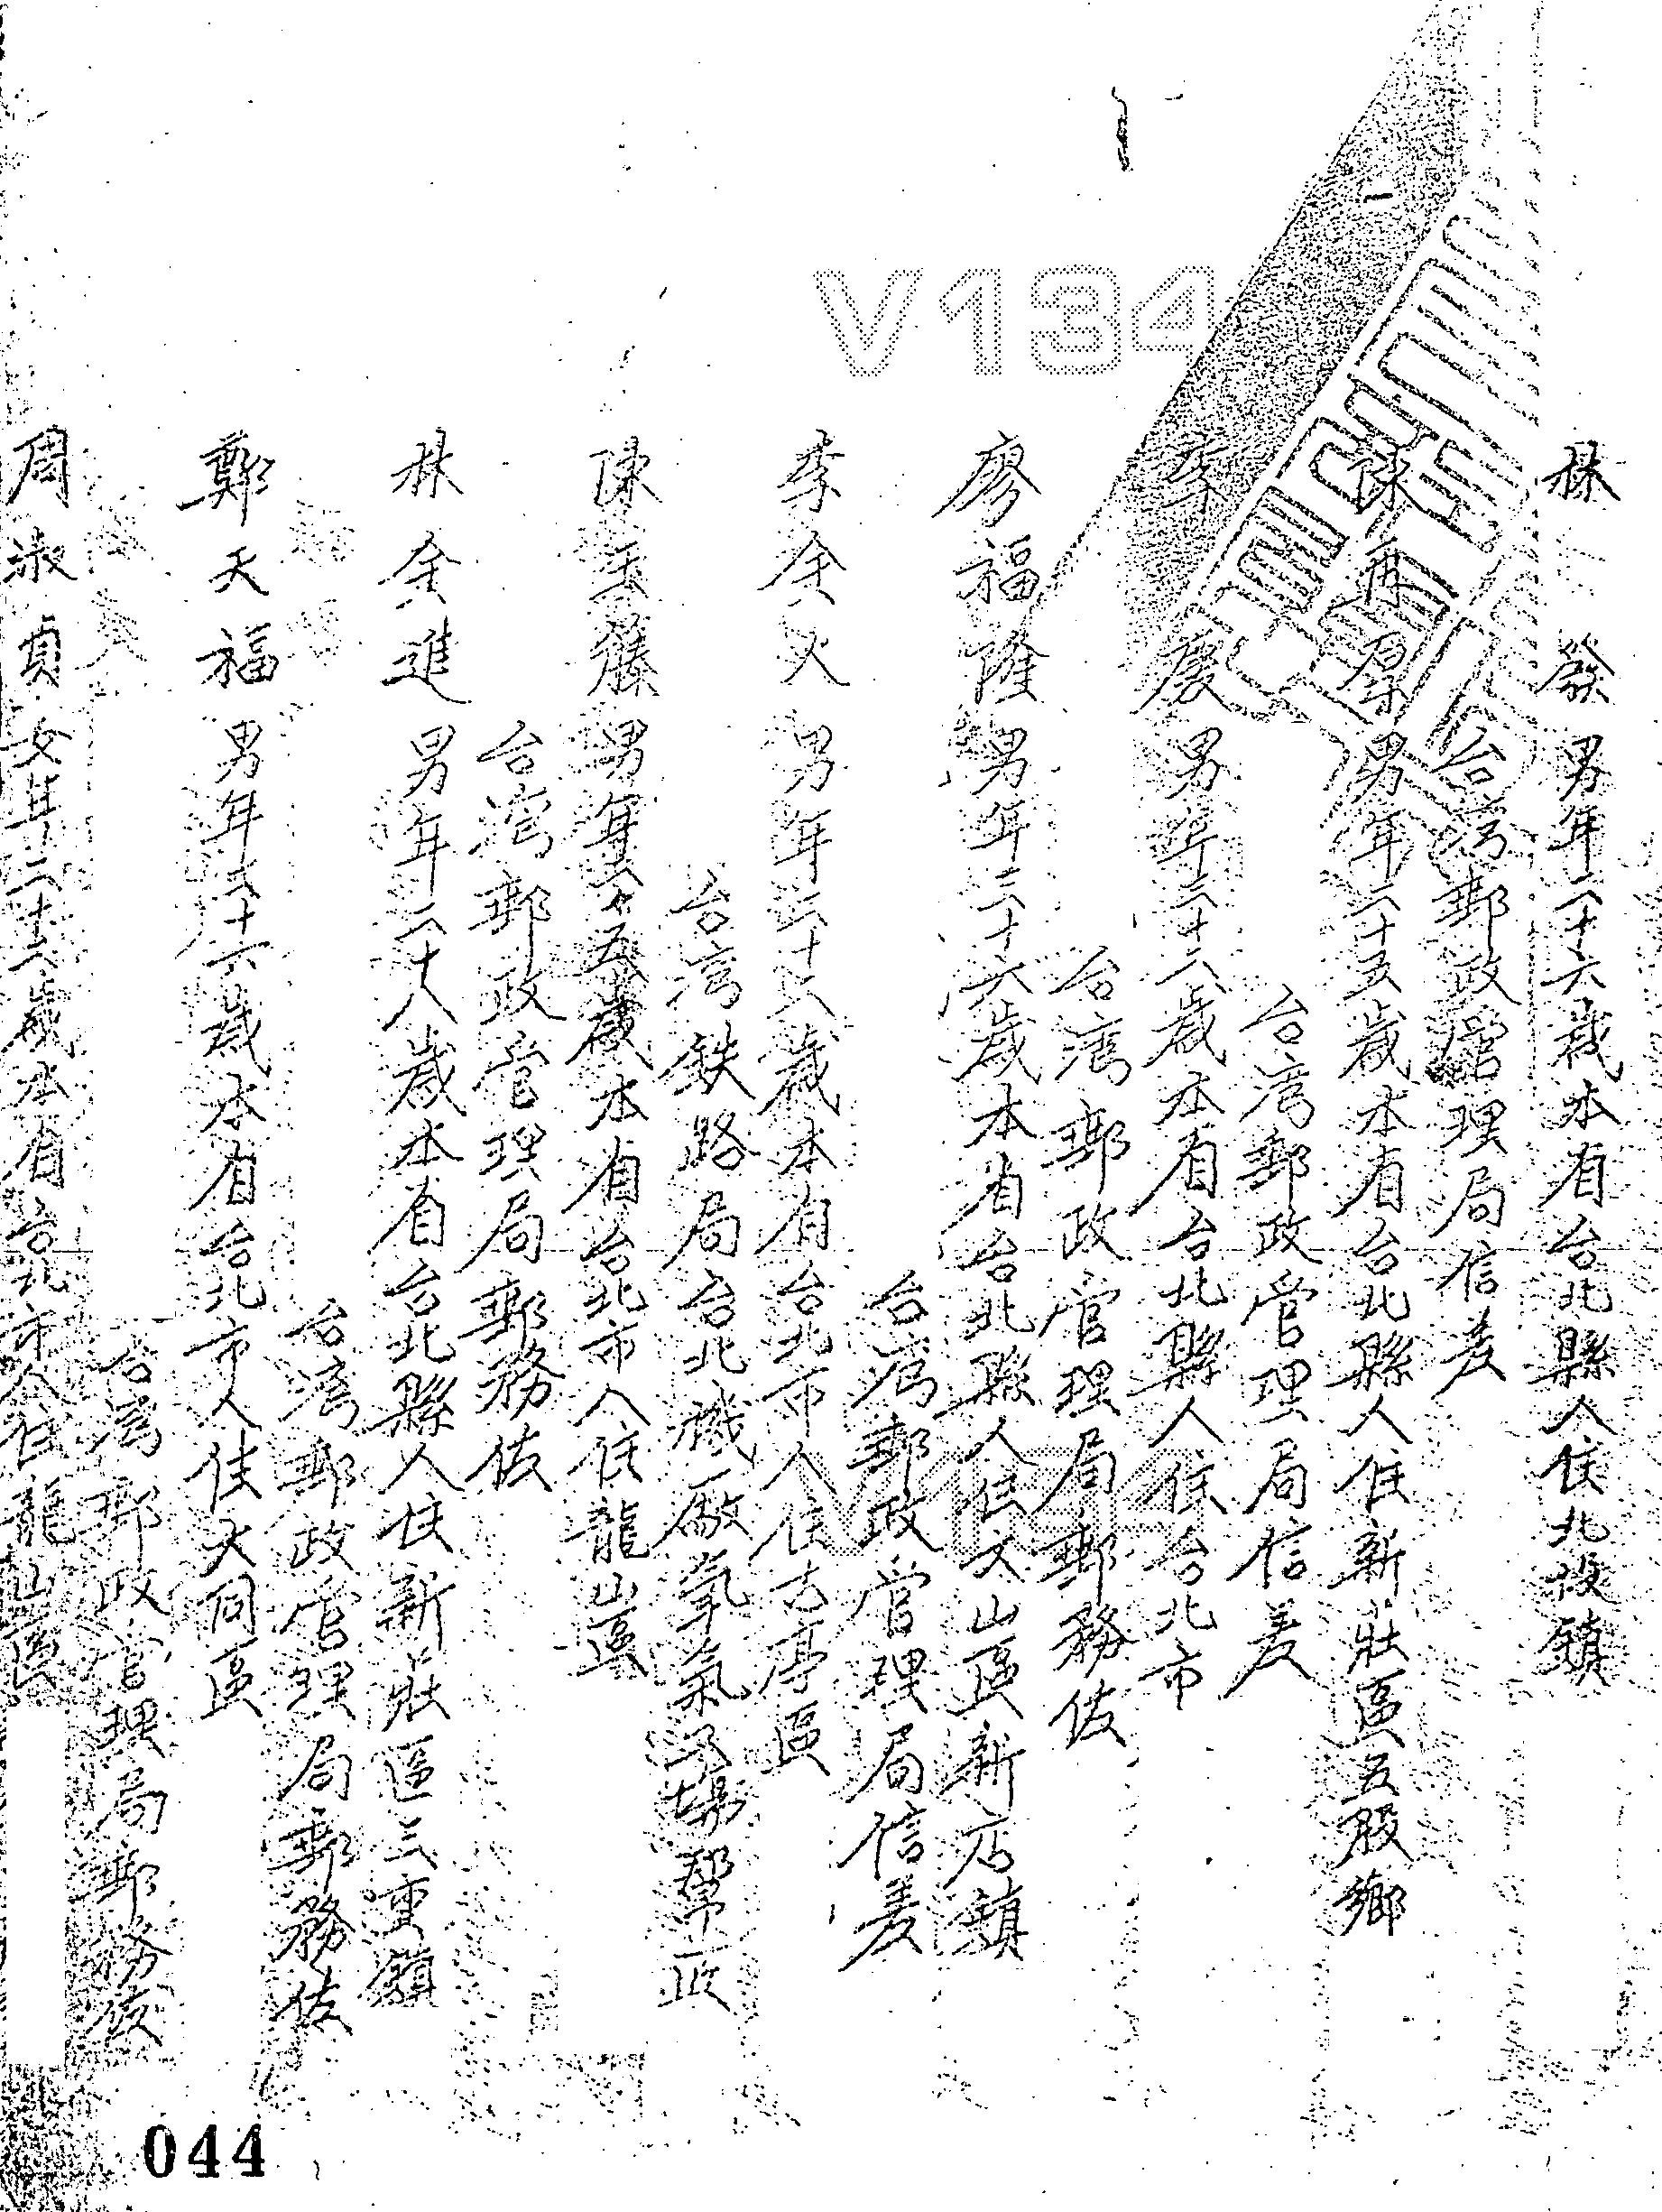 林 發 男年二十六歲本省台北縣人住北投鎮
台灣郵政管理局信差
陳再厚 男年二十五歲本省台北縣人住新莊區五股鄉
台灣郵政管理局信差
李 慶 男年二十六歲本省台北縣人住台北市
台灣郵政管理局郵務佐
廖福隆男年三十六歲本省台北縣人住文山區新店鎮
台灣郵政管理局信差
李金火 男年三十六歲本省台北市人住古亭區
台灣鉄路局台北機廠 氣 場幫
陳玉藤男年 五歲本省台北市人住龍山區
台灣郵政管理局郵務佐
林金進 男年二十八歲本省台北縣人住新莊區三重鎮
台灣郵政管理局郵務佐
鄭天福 男年三十六歲本省台北市人住大同區
台灣郵政管理局郵務佐
周淑貞女年二十六歲本省台北市人住龍山區
V134
V134
044